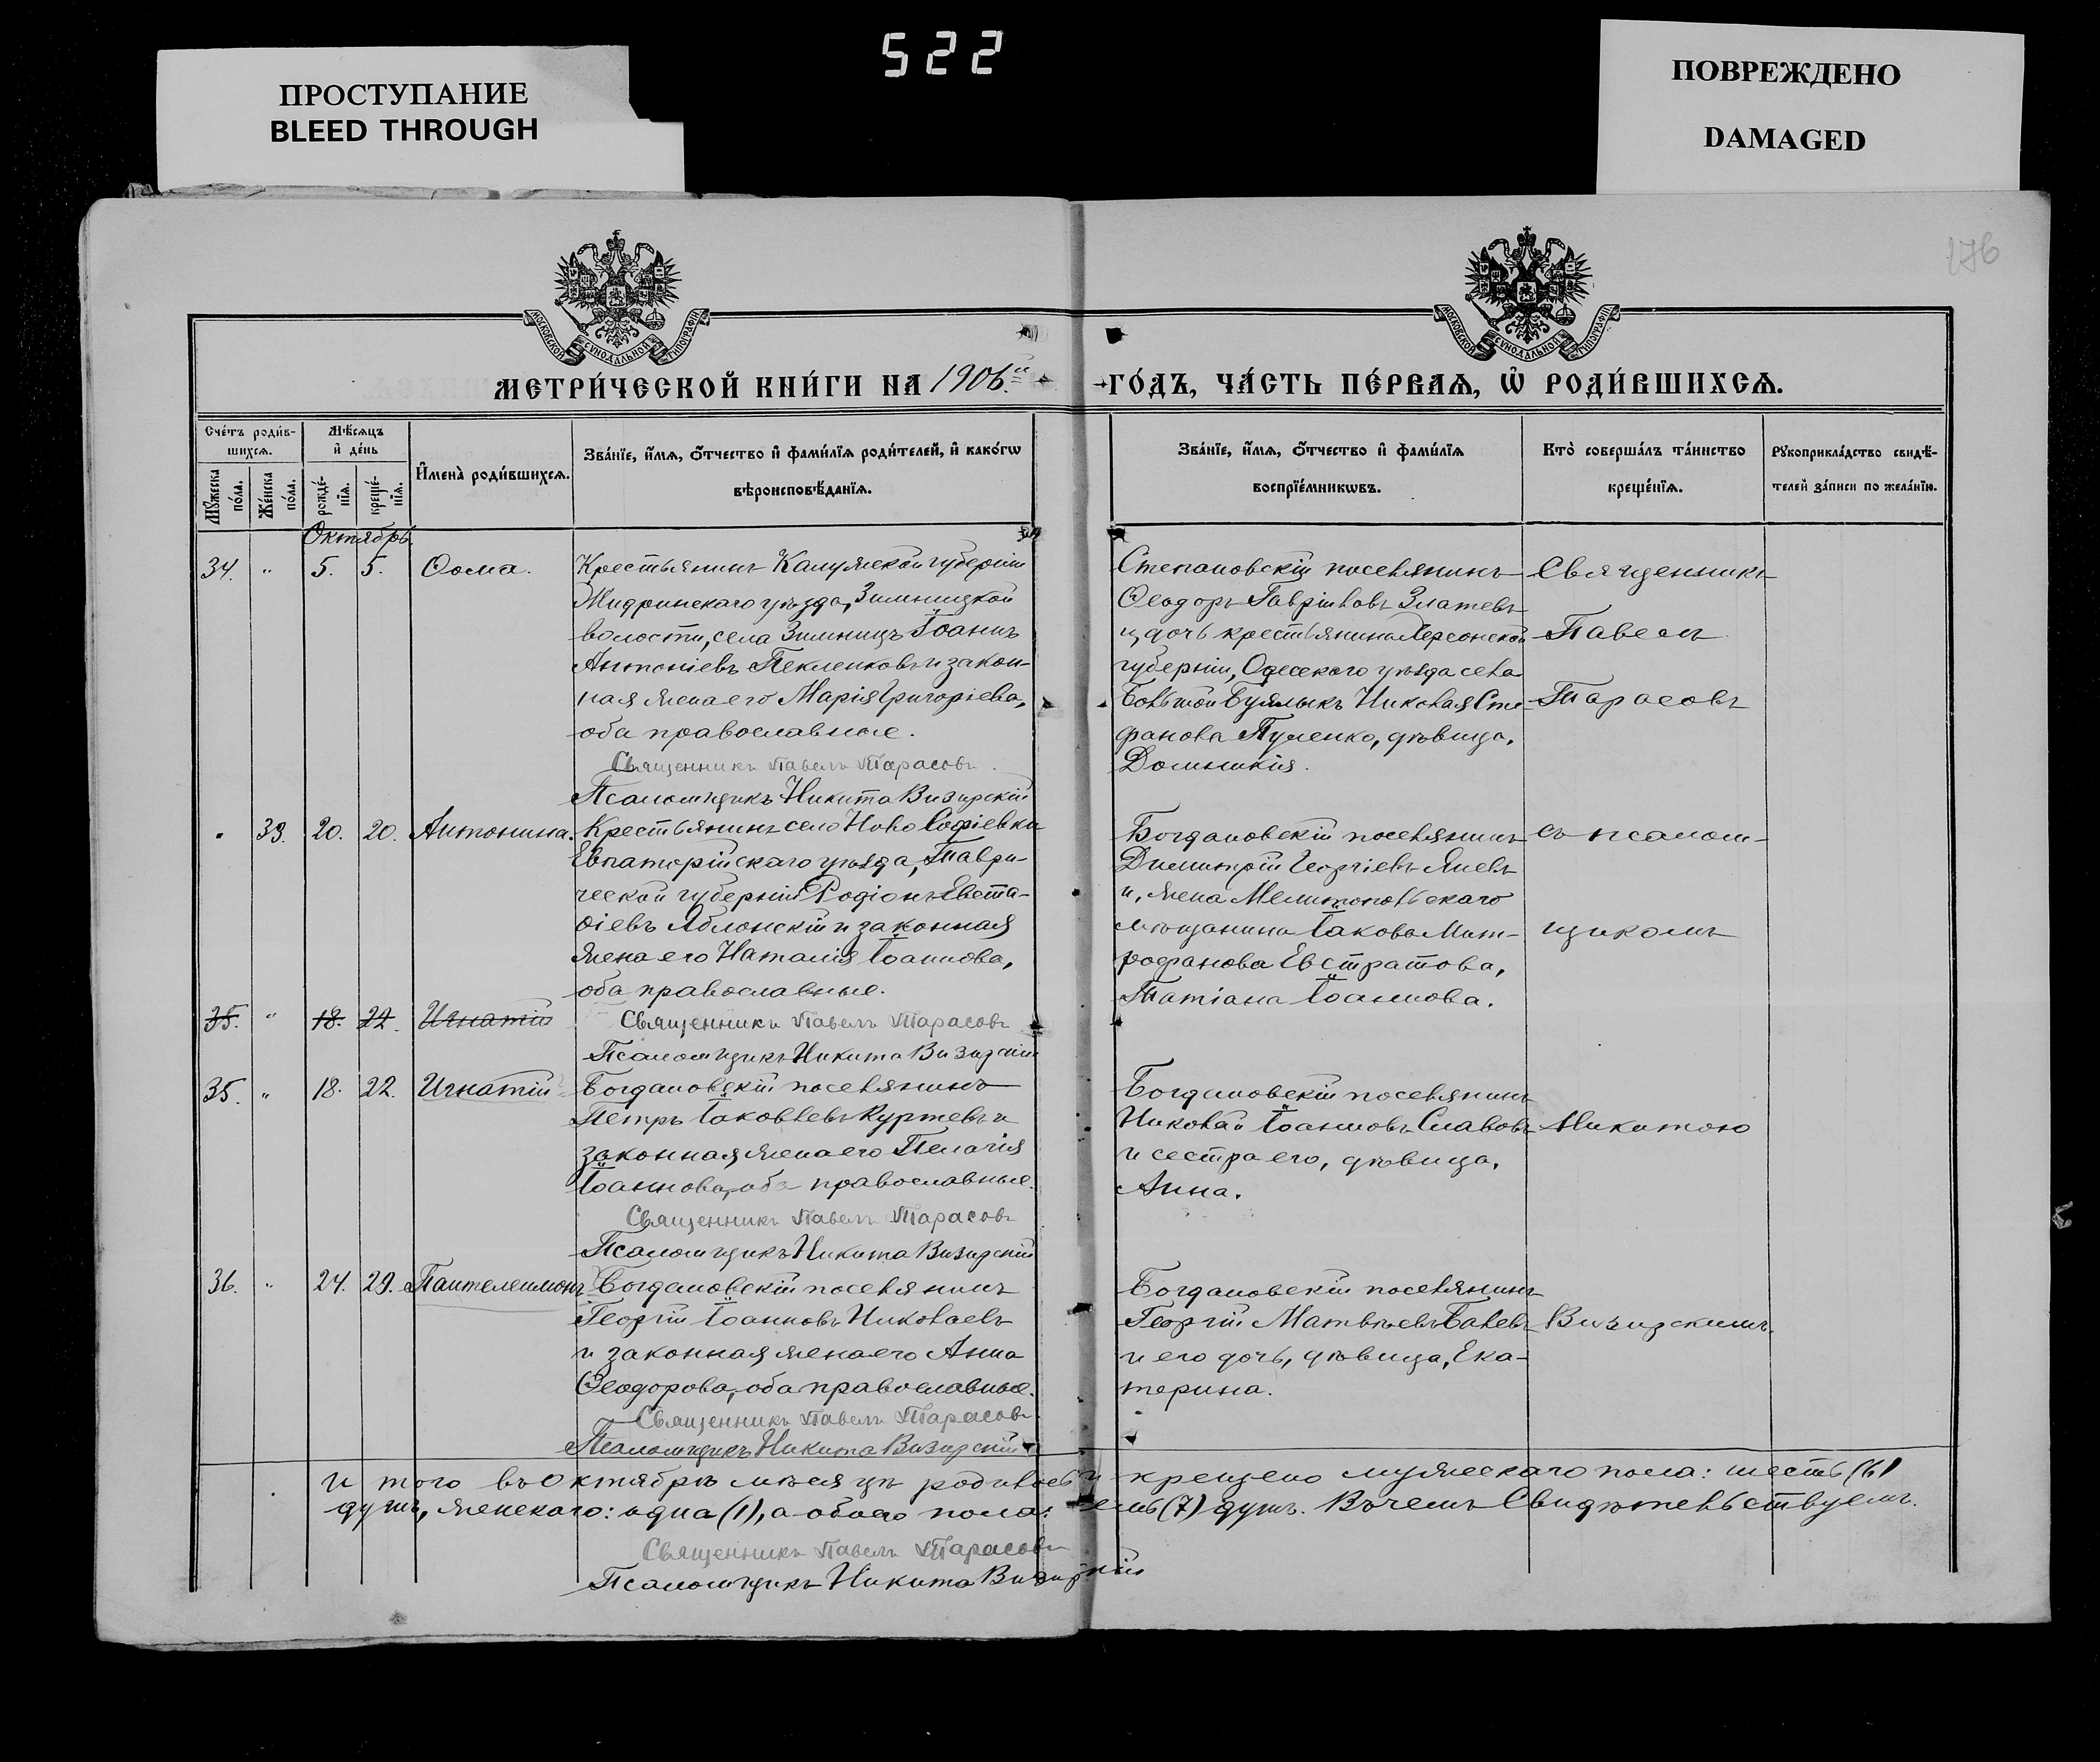 522
ПРОСТУПАНИЕ
BLEED THROUGH
ПОВРЕЖДЕНО
DAMAGED
176
МОСКОВСКОЙ СѴНОДАЛЬНОЙ ТИПОГРАФІИ
МОСКОВСКОЙ СѴНОДАЛЬНОЙ ТИПОГРАФІИ
МЕТРИ́ЧЕСКОЙ КНИ́ГИ НА 1906.й
ГО́ДЪ, ЧА́СТЬ ПЕ́РВАѦ, Ѽ РОДИ́ВШИХСѦ.
Сче́тъ роди́в-
шихсѧ.
Мꙋ́жеска по́ла.
Же́нска по́ла.
Мѣ́сѧцъ
и҆ де́нь
рожде́-нїѧ.
креще́-нїѧ.
И҆мена̀ роди́вшихсѧ.
Зва́нїе, и҆́мѧ, ѻ҆́тчество и҆ фами́лїѧ роди́телей, и҆ како́гѡ
вѣроисповѣ́данїѧ.
Зва́нїе, и҆́мѧ, ѻ҆́тчество и҆ фами́лїѧ
воспрїе́мникѡвъ.
Кто̀ соверша́лъ та́инство
креще́нїѧ.
Рꙋкоприкла́дство свидѣ́-
телей за́писи по жела́нїю.
Октябрь.
34. " 5. 5. Ѳома.
Крестьянинъ Калужской губерніи
Жидринскаго уѣзда, Зимницкой
волости, села Зимницъ Іоаннъ
Антоніевъ Пекленковъ и закон-
ная жена его Марія Григоріева,
оба православные.
Священникъ Павелъ Тарасовъ.
Псаломщикъ Никита Визирскій
Степановскій поселянинъ
Ѳеодоръ Гавріиловъ Златевъ
и дочь крестьянина Херсонской
губерніи, Одесскаго уѣзда села
Большой Буялыкъ Николая Сте-
фанова, дѣвица,
Домникія.
Священникъ
Павелъ
Тарасовъ
" 33. 20. 20. Антонина.
Крестьянинъ село Ново Софіевка
Евпаторійскаго уѣзда, Таври-
ческой губерніи Родіонъ Евста-
ѳіевъ Яблонскій и законная
жена его Наталія Іоаннова,
оба православные.
Священникъ Павелъ Тарасовъ
Псаломщикъ Никита Визирскій
Богдановскій поселянинъ
Димитрій Георгіевъ Яневъ
и, жена Мелитопольскаго
мѣщанина Іакова Мит-
рофанова Евстратова,
Татіана Іоаннова.
съ псалом-
щикомъ
35. " 18. 22. Игнатій
35. " 18. 22. Игнатій
Богдановскій поселянинъ
Петръ Іаковлевъ Куртевъ и
законная жена его Пелагія
Іоаннова, оба православные.
Священникъ Павелъ Тарасовъ
Псаломщикъ Никита Визирскій
Богдановскій поселянинъ
Николай Іоанновъ Славовъ
и сестра его, дѣвица,
Анна.
Никитою
36. " 24. 29. Пантелеимонъ
Богдановскій поселянинъ
Георгій Іоанновъ Николаевъ
и законная жена его Анна
Ѳеодорова, оба православные.
Священникъ Павелъ Тарасовъ
Псаломщикъ Никита Визирскій
Богдановскій поселянинъ
Георгій Матвѣевъ Балевъ
и его дочь, дѣвица, Ека-
терина.
Визирскимъ.
И того въ Октябрѣ мѣсяцѣ родилось и крещено мужескаго пола: шесть (6)
душъ, женскаго: одна (1), а обоего пола: семь (7) душъ. Въ чемъ Свидѣтельствуемъ.
Священникъ Павелъ Тарасовъ
Псаломщикъ Никита Визирскій